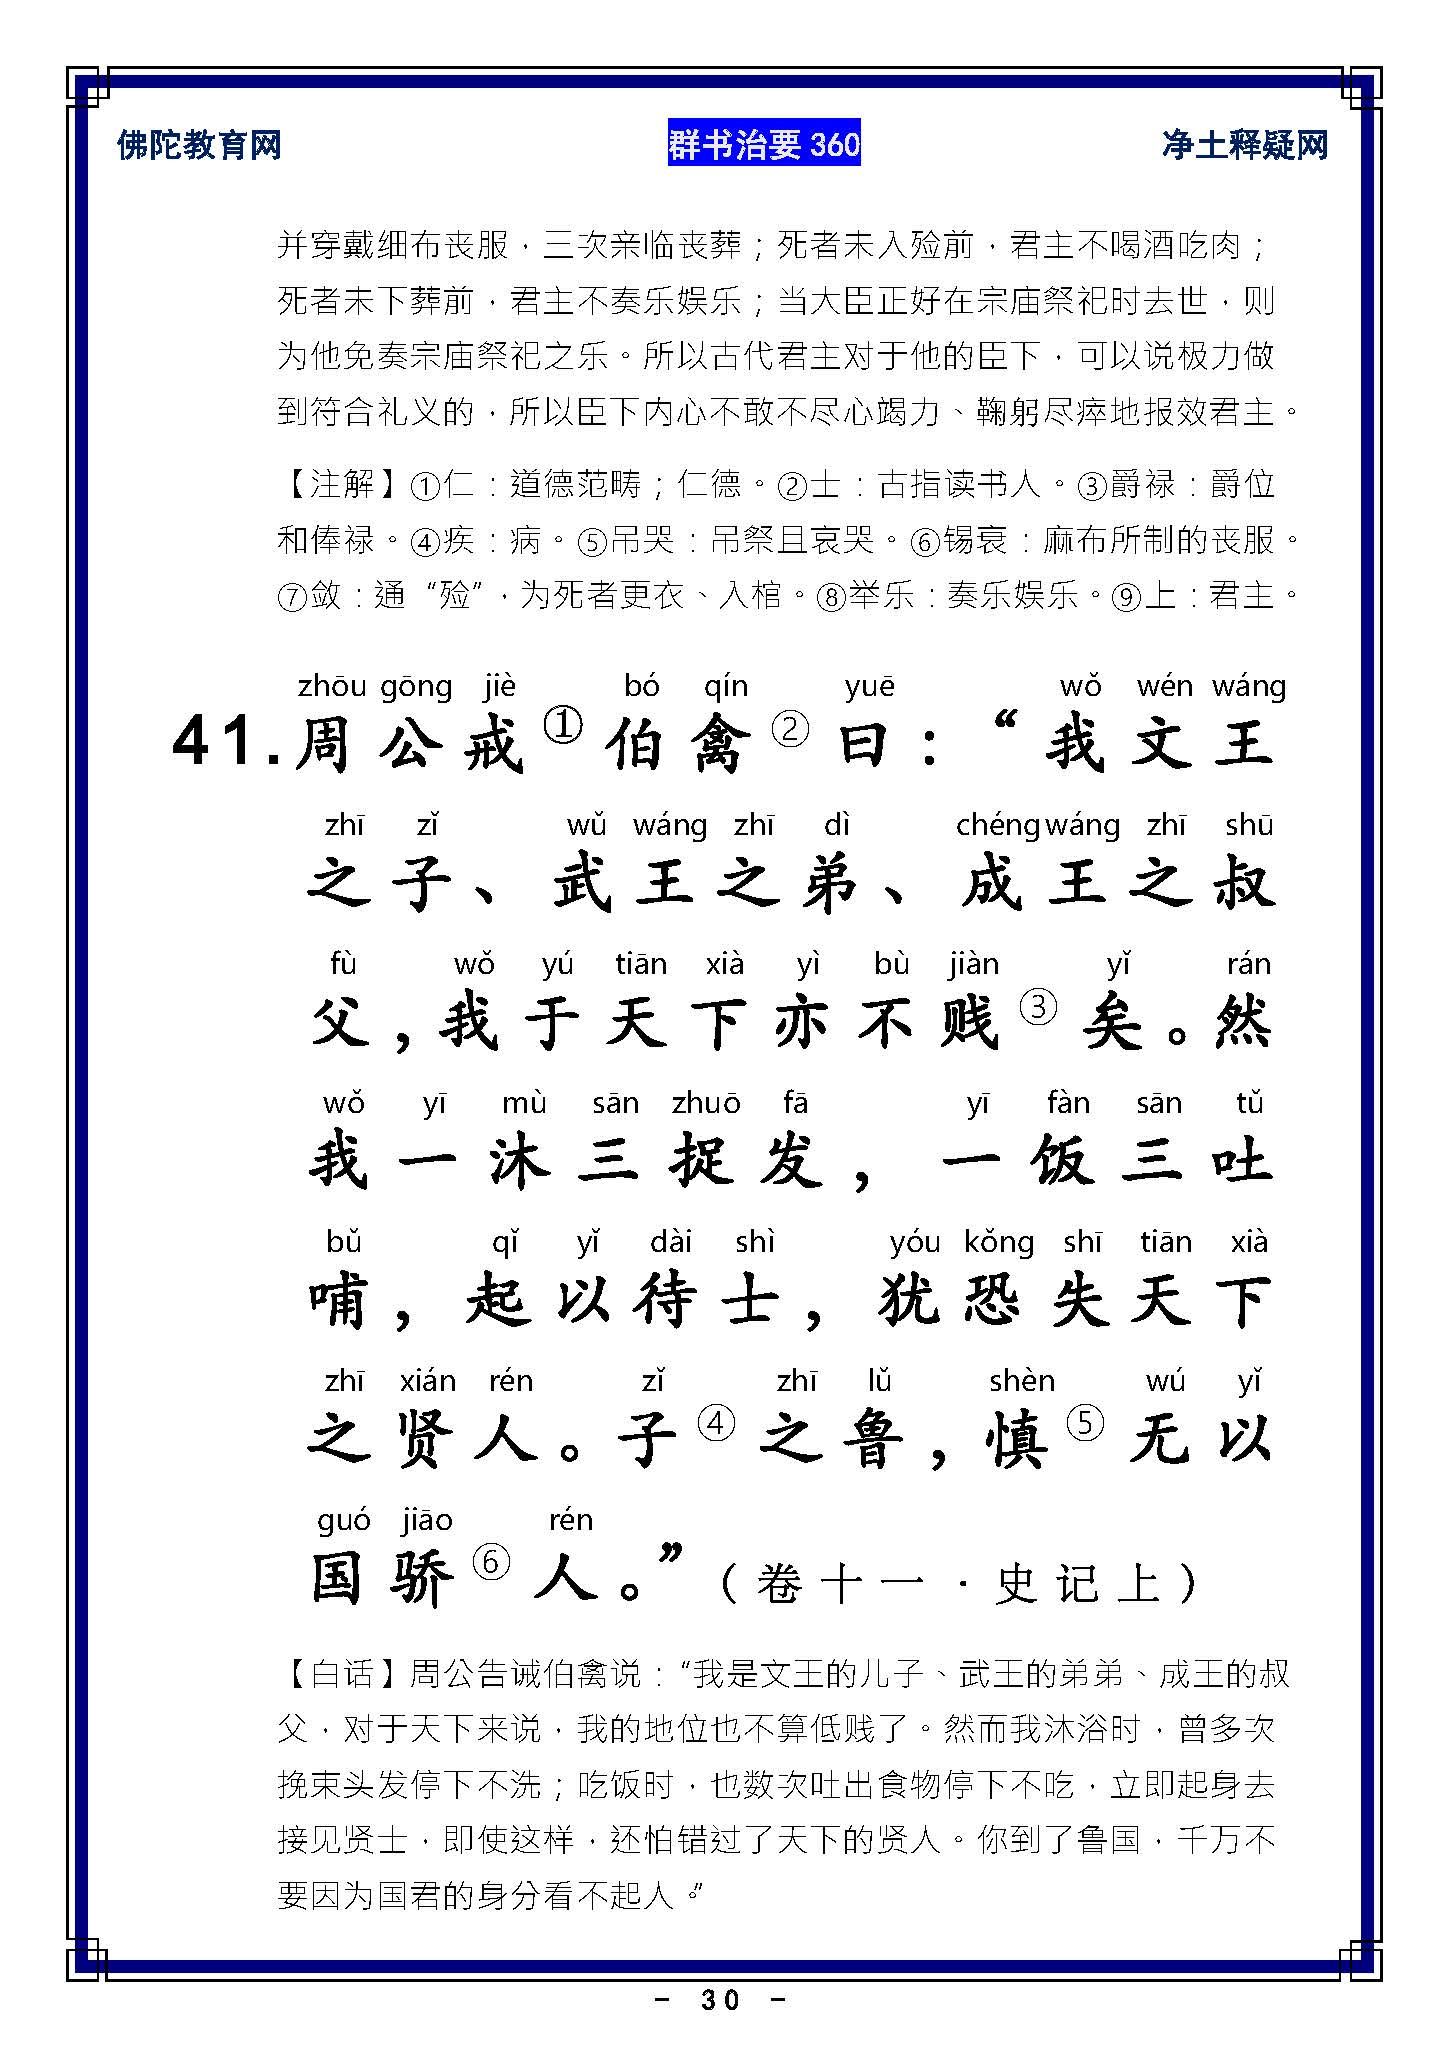 佛陀教育网 群书治要 360 净土释疑网
并穿戴细布丧服，三次亲临丧葬；死者未入殓前，君主不喝酒吃肉；
死者未下葬前，君主不奏乐娱乐；当大臣正好在宗庙祭祀时去世，则
为他免奏宗庙祭祀之乐。所以古代君主对于他的臣下，可以说极力做
到符合礼义的，所以臣下内心不敢不尽心竭力、鞠躬尽瘁地报效君主。
【注解】①仁：道德范畴；仁德。②士：古指读书人。③爵禄：爵位
和俸禄。④疾：病。⑤吊哭：吊祭且哀哭。⑥锡衰：麻布所制的丧服。
⑦敛：通“殓”，为死者更衣、入棺。⑧举乐：奏乐娱乐。⑨上：君主。
zhōu gōng jiè bó qín yuē wǒ wén wáng
41.周公戒①伯禽②曰：“我文王
zhī zǐ wǔ wáng zhī dì chéng wáng zhī shū
之子、武王之弟、成王之叔
fù wǒ yú tiān xià yì bù jiàn yǐ rán
父，我于天下亦不贱③矣。然
wǒ yī mù sān zhuō fā yī fàn sān tǔ
我一沐三捉发，一饭三吐
bǔ qǐ yǐ dài shì yóu kǒng shī tiān xià
哺，起以待士，犹恐失天下
zhī xián rén zǐ zhī lǔ shèn wú yǐ
之贤人。子④之鲁，慎⑤无以
guó jiāo rén
国骄⑥人。”（卷十一·史记上）
【白话】周公告诫伯禽说：“我是文王的儿子、武王的弟弟、成王的叔
父，对于天下来说，我的地位也不算低贱了。然而我沐浴时，曾多次
挽束头发停下不洗；吃饭时，也数次吐出食物停下不吃，立即起身去
接见贤士，即使这样，还怕错过了天下的贤人。你到了鲁国，千万不
要因为国君的身分看不起人。”
- 30 -